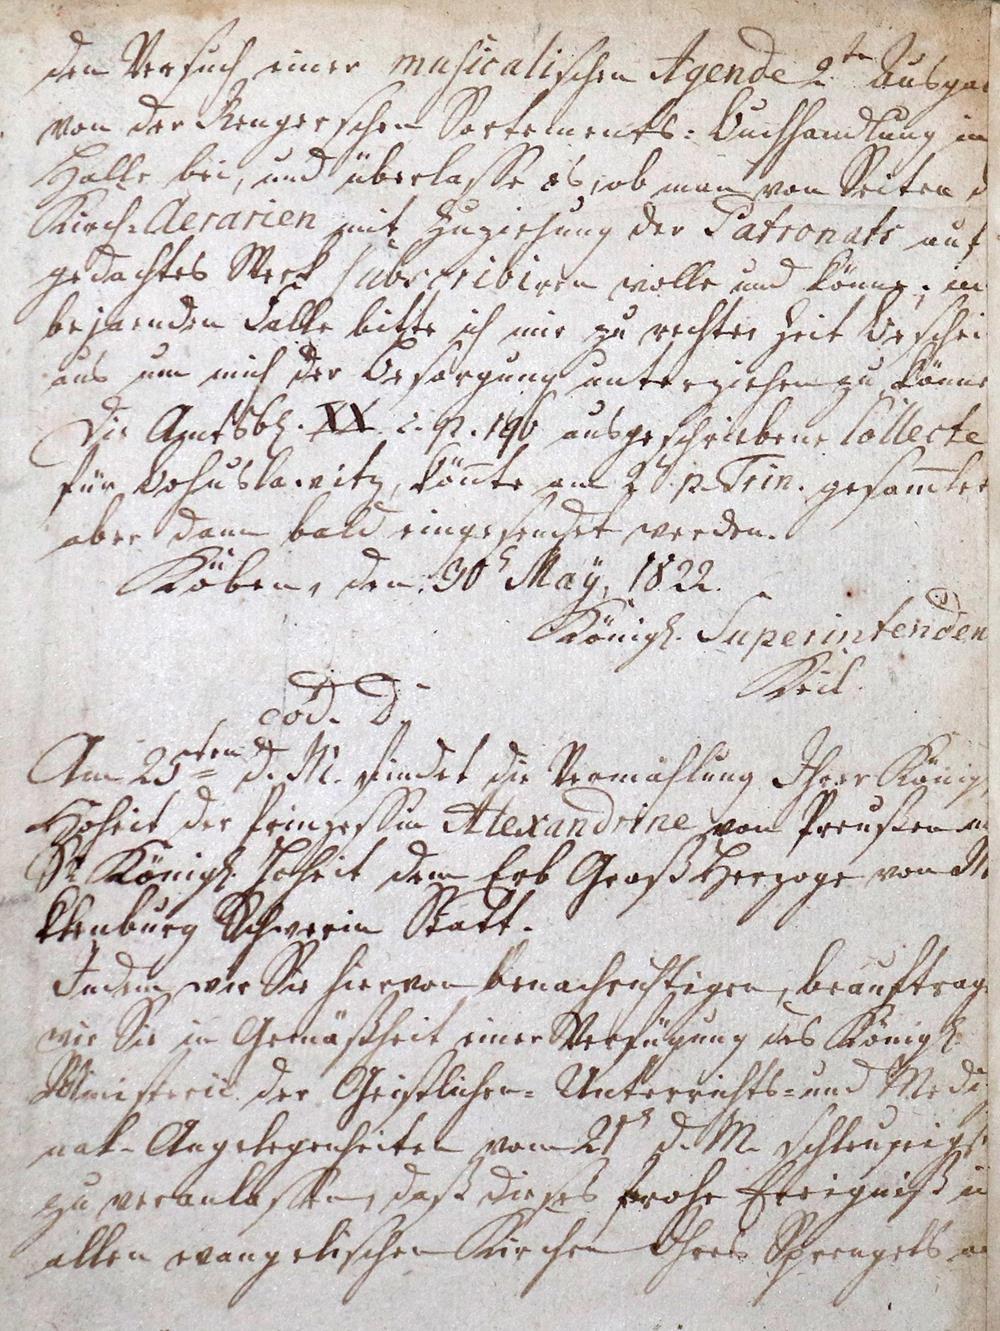 den Versuch einer musicalischen Agende 2te Ausga
von der Rengerschen Sortements-Buchhandlung in
Halle bei, und überlasse es, ob man von Seiten d
Kirch-Aerarien mit Zuziehung der Patronats auf
gedachtes Werk subscribiren wolle und könne; in
bejaenden Falle bitte ich mir zu rechter Zeit Beschei
aus um mich der Besorgung unterziehen zu könne
Die Amtsbl. XX. p. 190 ausgeschriebene Collecte
für Bohuslawitz, könte am 2 p. Trin. gesamlet
aber dann bald eingesendet werden.
Köben, den 30t May, 1822.
Königl. Superintenden
Keil.
eod. D.
Am 25ten d. M. findet die Vermählung Ihrer König
Hoheit der Prinzessin Alexandrine von Preußen m
Sr Königl. Hoheit dem Erb Groß Herzoge von M
klenburg Schwerin Statt.
Indem wir Sie hiervon benachrichtigen, beauftrag
wir Sie in Gemäßheit einer Verfügung des Königl.
Ministerii der Geistlichen- Unterrichts- und Medi
nal- Angelegenheiten vom 21t d. M. schleunigst
zu veranlassen, daß dieses frohe Ereigniß i
allen evangelischen Kirchen Ihres Sprengels